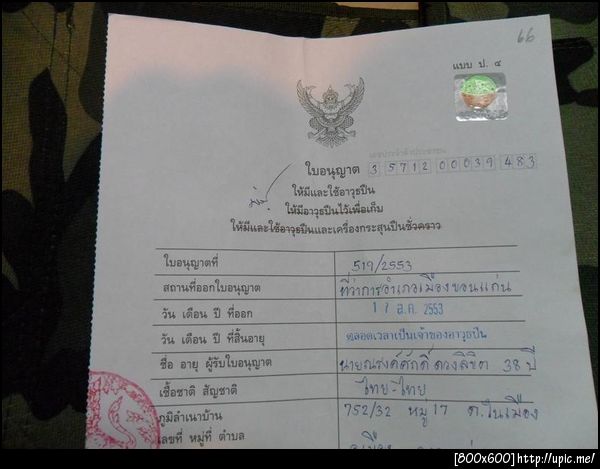 66
แบบ ป. ๔
เลขประจำตัวประชาชน
ใบอนุญาต 3 5712 00039 483
ให้มีและใช้อาวุธปืน
ให้มีอาวุธปืนไว้เพื่อเก็บ
ให้มีและใช้อาวุธปืนและเครื่องกระสุนปืนชั่วคราว
ใบอนุญาตที่ 519/2553
สถานที่ออกใบอนุญาต ที่ว่าการอำเภอเมืองขอนแก่น
วัน เดือน ปี ที่ออก 17 ส.ค. 2553
วัน เดือน ปี ที่สิ้นอายุ ตลอดเวลาเป็นเจ้าของอาวุธปืน
ชื่อ อายุ ผู้รับใบอนุญาต นายณรงค์ศักดิ์ ดวงลิขิต 38 ปี
เชื้อชาติ สัญชาติ ไทย-ไทย
ภูมิลำเนาบ้าน 752/32 หมู่ 17 ต.ในเมือง
เลขที่ หมู่ที่ ตำบล
[800x600]http://upic.me/